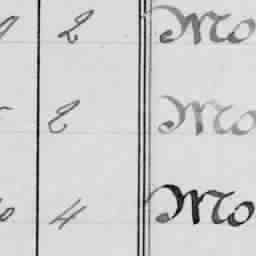 2 Mo
2 Mo
4 Mo